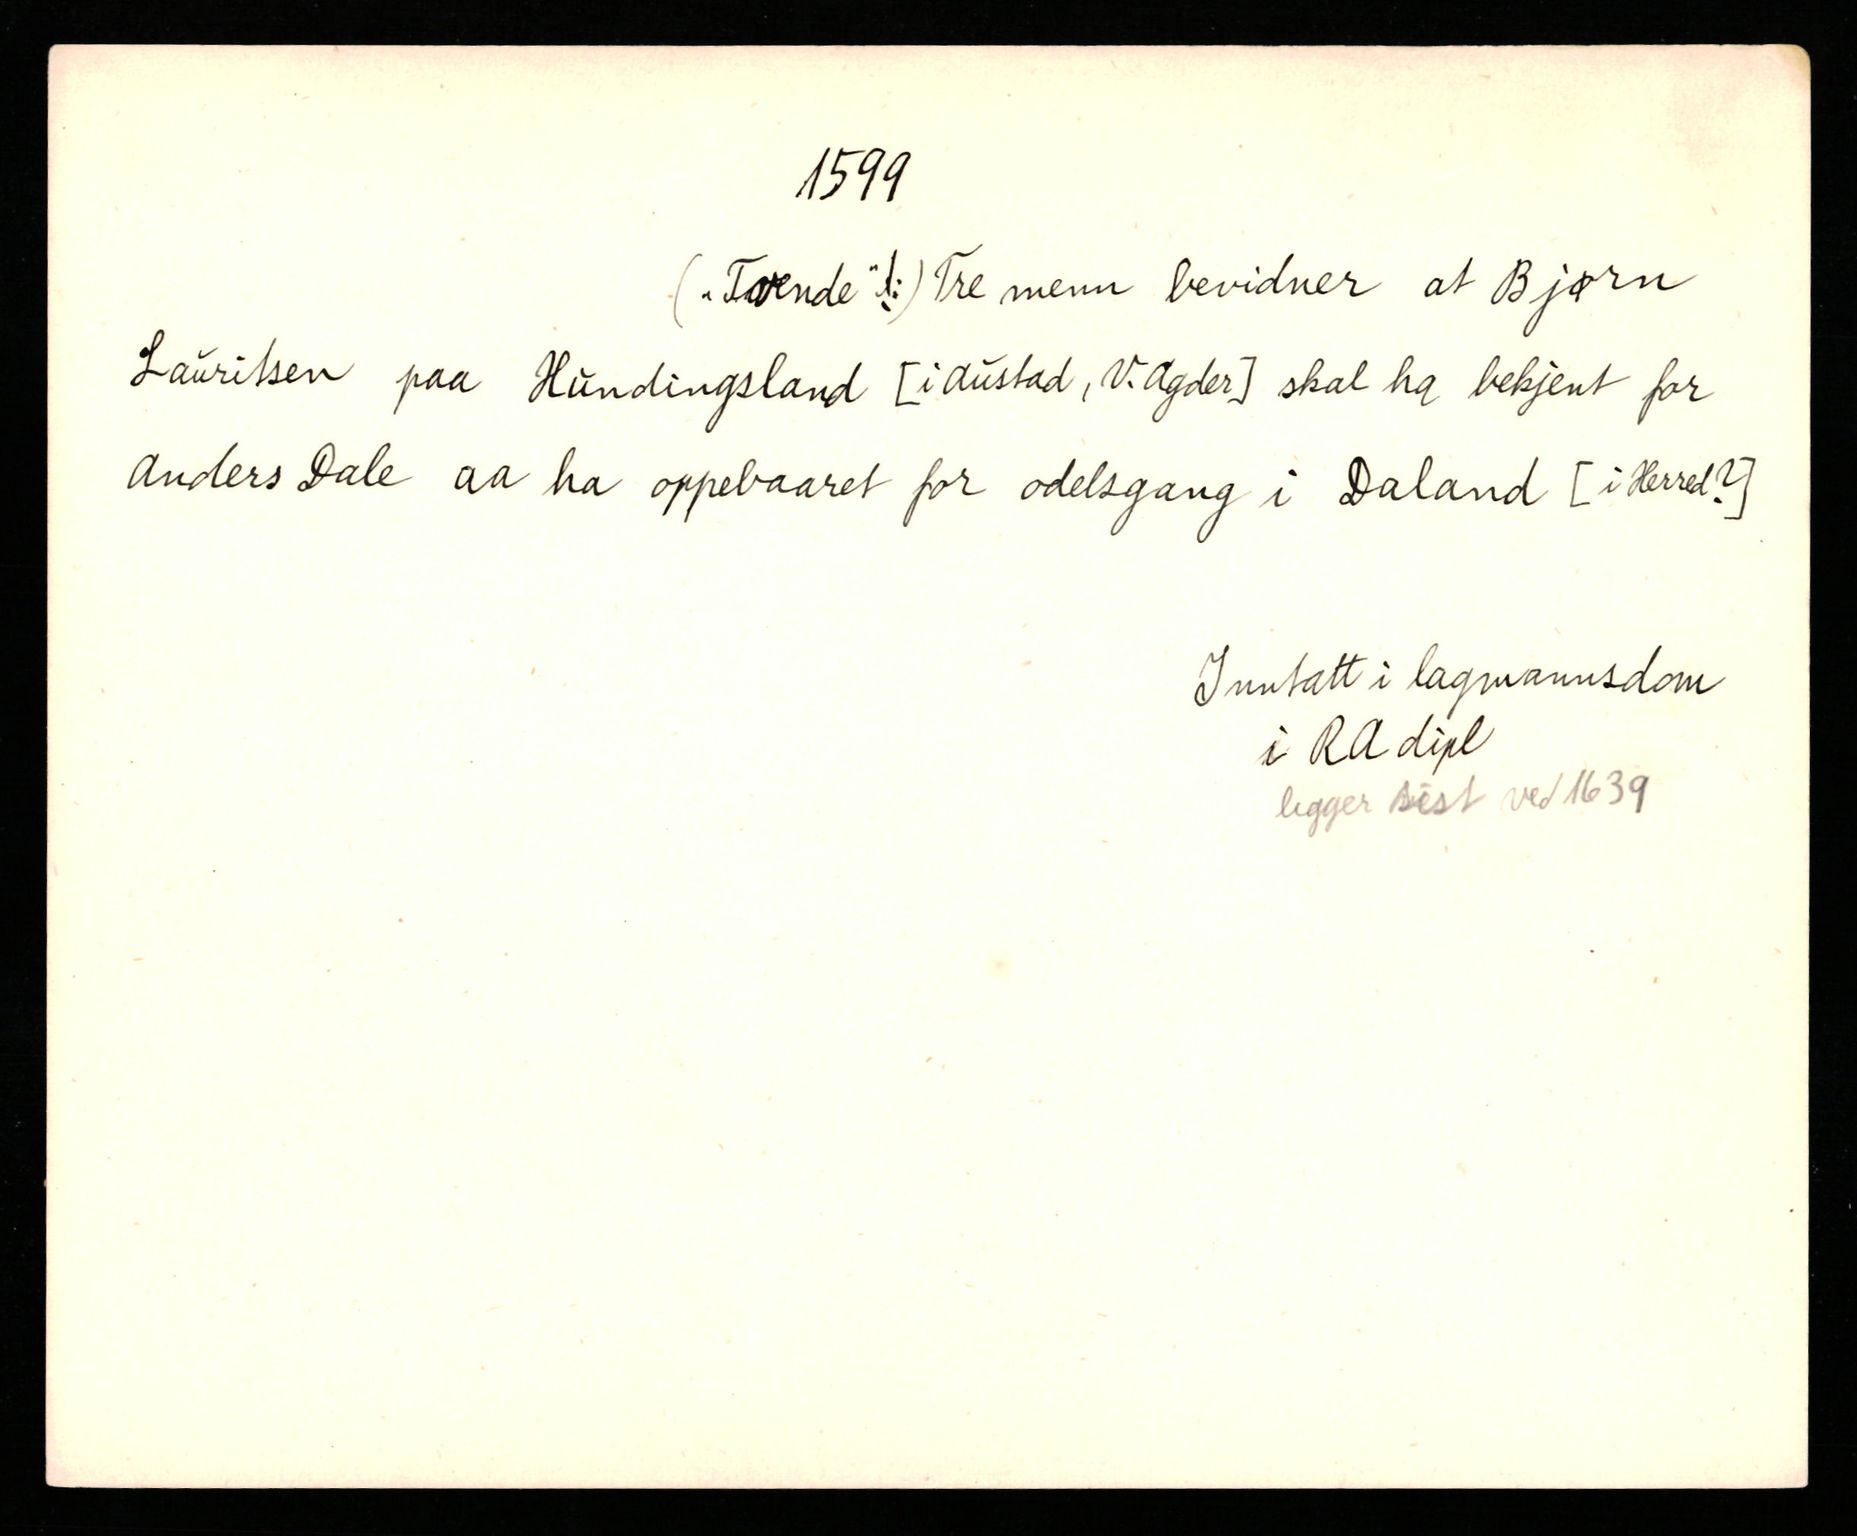 1599
("Tvende"!:) Tre menn bevidner at Bjørn
Lauritsen paa Hundingsland [i Austad, V. Agder] skal ha bekjent for
Anders Dale aa ha oppebaaret for odelsgang i Daland [i Herred?]
Inntatt i lagmannsdom
i RA dipl
ligger sist ved 1639